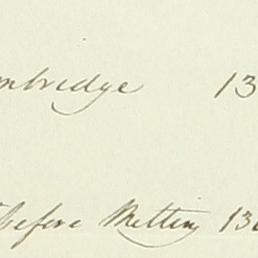 mbridge 13
Before Melting 13